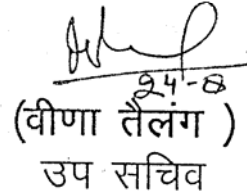 24-8
(वीणा तैलंग )
उप सचिव